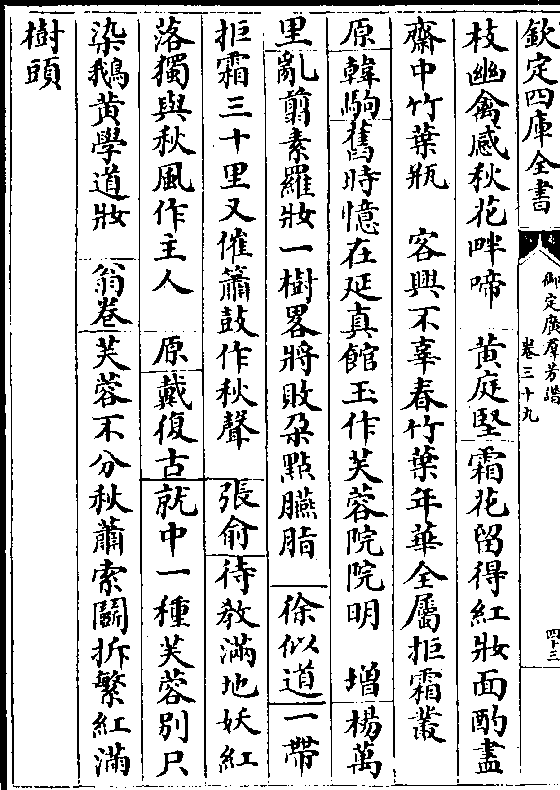 欽定四庫全書
御定廣羣芳譜
卷三十九
四十三
枝幽禽感秋花畔啼　黄庭堅霜花留得紅妝面酌盡
齋中竹葉瓶　客興不辜春竹葉年華全屬拒霜叢
原韓駒舊時憶在延真館玉作芙蓉院院明　增楊萬
里亂剪素羅妝一樹畧將數朶點臙脂　徐似道一帶
拒霜三十里又催簫鼓作秋聲　張俞待教滿地妖紅
落獨與秋風作主人　原戴復古就中一種芙蓉别只
染鵝黄學道妝　翁卷芙蓉不分秋蕭索闘拆繁紅滿
樹頭